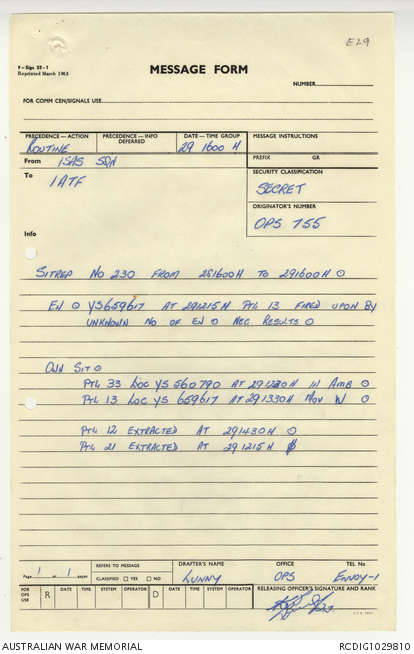 E29
F—Sigs 32-1
Reprinted March 1965
MESSAGE FORM
NUMBER
FOR COMM CEN/SIGNALS USE
PRECEDENCE—ACTION
ROUTINE
PRECEDENCE—INFO
DEFERRED
DATE—TIME GROUP
29 1600 H
MESSAGE INSTRUCTIONS
From 1SAS SQN
PREFIX GR
To 1ATF
SECURITY CLASSIFICATION
SECRET
ORIGINATOR'S NUMBER
OPS 755
Info
SITREP No 230 FROM 281600H TO 291600H O
EN O YS659617 AT 291215H PTL 13 FIRED UPON BY
UNKNOWN NO OF EN O NEG RESULTS O
OWN SIT O
PTL 33 LOC YS 560790 AT 291230H IN AMB O
PTL 13 LOC YS 659617 AT 291330H MOV W O
PTL 12 EXTRACTED AT 291430H O
PTL 21 EXTRACTED AT 291215H
Page 1 of 1 pages
REFER TO MESSAGE
CLASSIFIED YES NO
DRAFTER'S NAME
LUNNY
OFFICE
OPS
TEL No
ENVOY-1
FOR OPS USE
R DATE TIME SYSTEM OPERATOR D DATE TIME SYSTEM OPERATOR
RELEASING OFFICER'S SIGNATURE AND RANK
AUSTRALIAN WAR MEMORIAL
RCDIG1029810